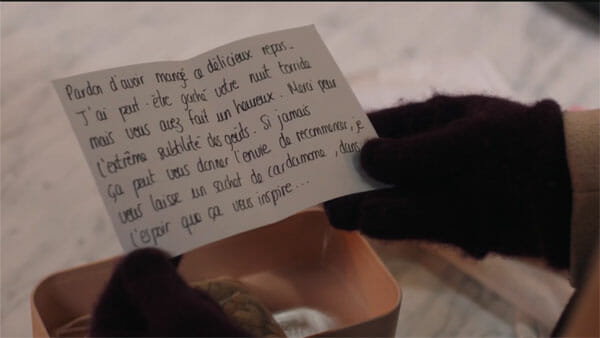 Pardon d'avoir mangé ce délicieux repas_
J'ai peut-être gâché votre nuit torride
mais vous avez fait un heureux. Merci pour
l'extrême subtilité des goûts. Si jamais
ça peut vous donner l'envie de recommencer, je
vous laisse un sachet de cardamome, dans
l'espoir que ça vous inspire...